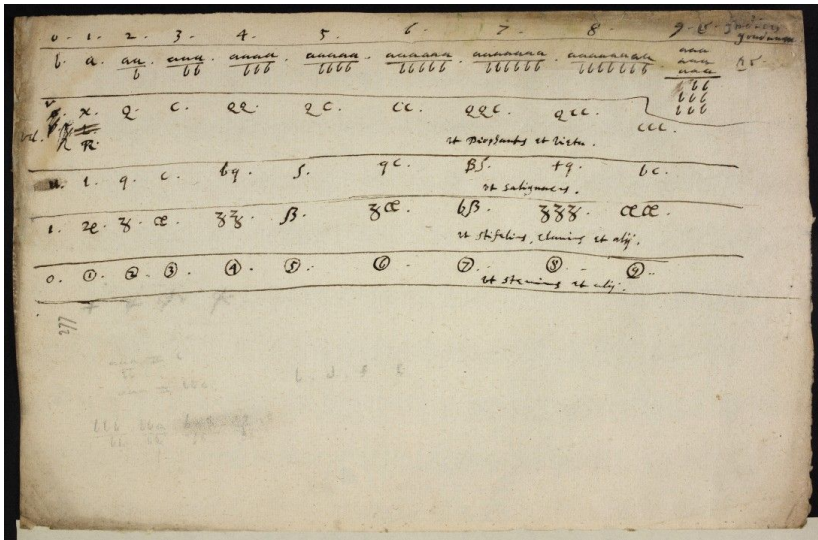 0. 1. 2. 3. 4. 5. 6. 7. 8. 9. &c.
b. a. aa/b aaa/bb aaaa/bbb aaaaa/bbbb aaaaaa/bbbbb aaaaaaa/bbbbbb aaaaaaaa/bbbbbbb aaaaaaaaa/bbbbbbbb
x. Q. C. QQ. QC. CC. QQC. QCC. CCC.
vel. R.
ut Diophantus et Vieta.
u. l. q. c. bq. ſ. qc. βſ. tq. bc.
ut Salignacus.
1. 2e. ʒ. ce. ʒʒ. β. ʒce. bβ. ʒʒʒ. cece.
ut Stifelius, Clavius et alij.
0. ①. ②. ③. ④. ⑤. ⑥. ⑦. ⑧. ⑨.
ut Stevinus et alij.
277